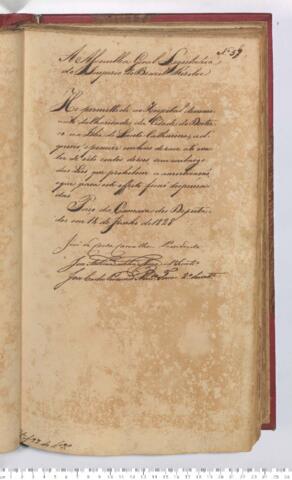 Nº 59
A Assemblea Geral Legislativa
do Imperio do Brazil Resolve
He permittido ao Hospital
de Caridade da Cidade do Desterro
na Ilha de Santa Catharina, ad-
quirir, e possuir em bens de raiz até o va-
lor de oito contos de reis sem embargo
das Leis que prohibem a amortização,
que para este effeito ficão dispensa-
das
Paço da Camara dos Deputa-
dos em 14 de Junho de 1828
José da Costa Carvalho Presidente
José
José Carlos 2º Secretº